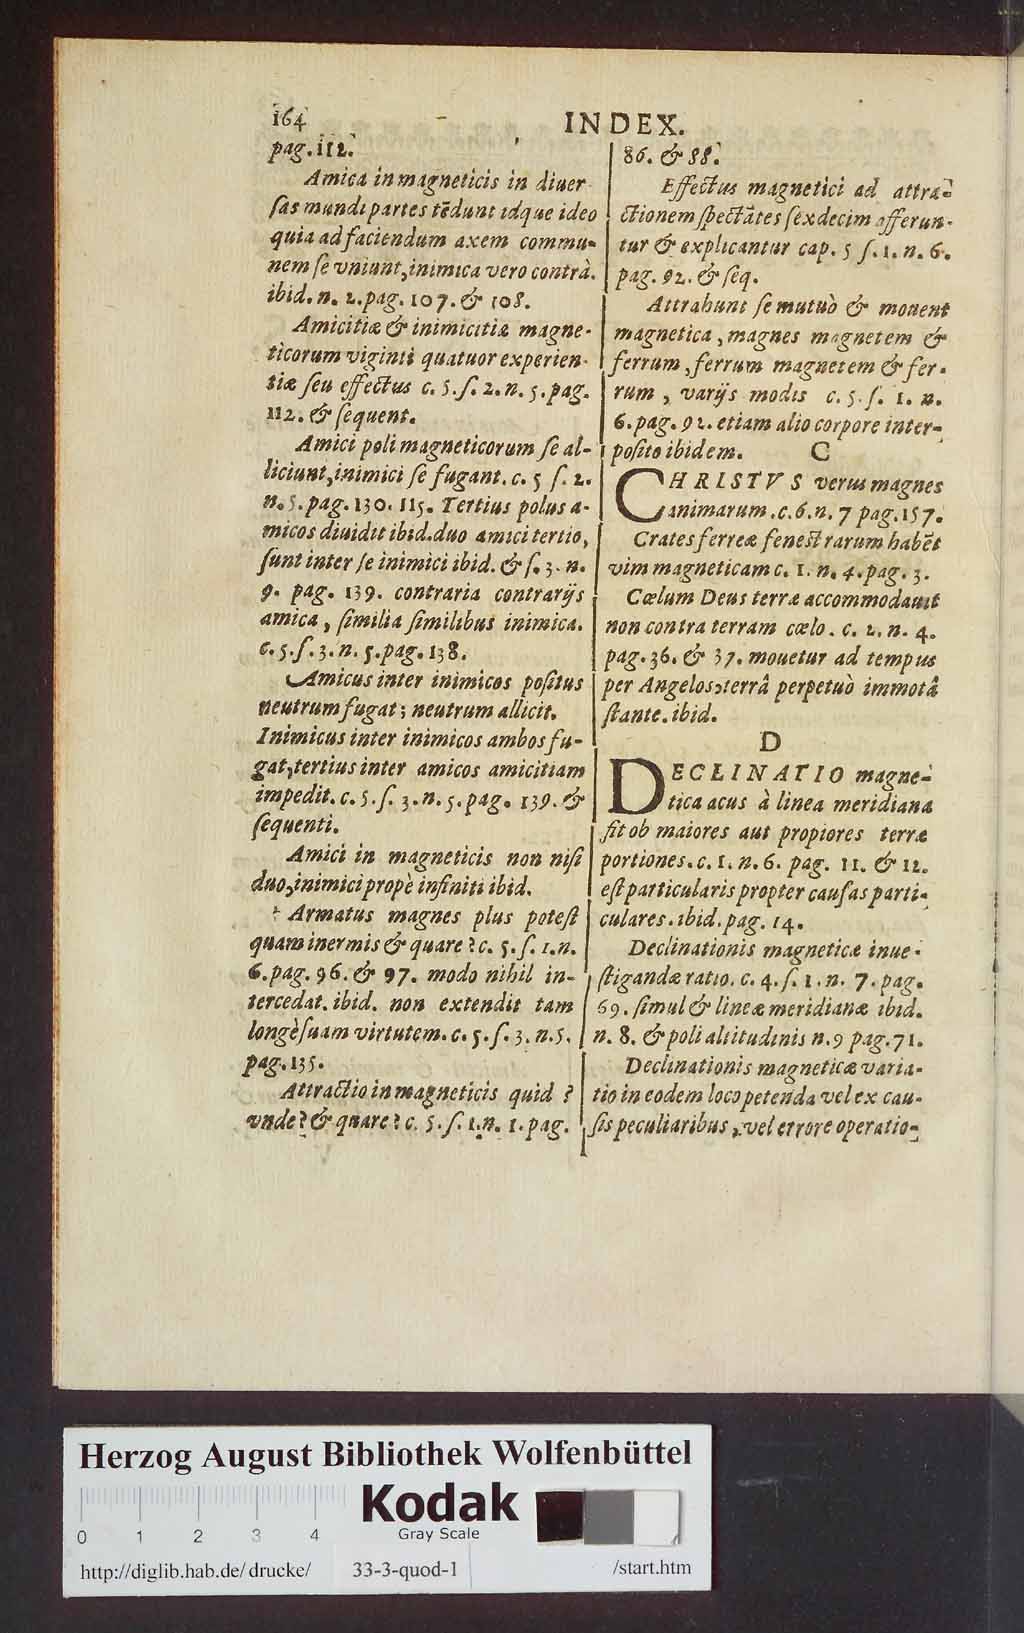 164 INDEX.
pag. 112.
Amica in magneticis in diuer-
ſas mundi partes tēdunt idque ideo
quia ad faciendum axem commu-
nem ſe vniunt, inimica vero contrà.
ibid. n. 2. pag. 107. & 108.
Amicitiæ & inimicitiæ magne-
ticorum viginti quatuor experien-
tiæ ſeu effectus c. 5. ſ. 2. n. 5. pag.
112. & ſequent.
Amici poli magneticorum ſe al-
liciunt, inimici ſe fugant. c. 5 ſ. 2.
n. 5. pag. 130. 115. Tertius polus a-
micos diuidit ibid. duo amici tertio,
ſunt inter ſe inimici ibid. & ſ. 3. n.
9. pag. 139. contraria contrarijs
amica, ſimilia ſimilibus inimica.
c. 5. ſ. 3. n. 5. pag. 138.
Amicus inter inimicos poſitus
neutrum fugat; neutrum allicit.
Inimicus inter inimicos ambos fu-
gat, tertius inter amicos amicitiam
impedit. c. 5. ſ. 3. n. 5. pag. 139. &
ſequenti.
Amici in magneticis non niſi
duo, inimici propè infiniti ibid.
Armatus magnes plus poteſt
quam inermis & quare? c. 5. ſ. 1. n.
6. pag. 96. & 97. modo nihil in-
tercedat. ibid. non extendit tam
longè ſuam virtutem. c. 5. ſ. 3. n. 5.
pag. 135.
Attractio in magneticis quid?
vnde? & quare? c. 5. ſ. 1. n. 1. pag.
86. & 88.
Effectus magnetici ad attra-
ctionem ſpectātes ſexdecim afferun-
tur & explicantur cap. 5 ſ. 1. n. 6.
pag. 92. & ſeq.
Attrahunt ſe mutuò & mouent
magnetica, magnes magnetem &
ferrum, ferrum magnetem & fer-
rum, varijs modis c. 5. ſ. 1. n.
6. pag. 92. etiam alio corpore inter-
poſito ibidem.
C
CHRISTVS verus magnes
animarum. c. 6. n. 7 pag. 157.
Crates ferreæ feneſtrarum habēt
vim magneticam c. 1. n. 4. pag. 3.
Cœlum Deus terræ accommodauit
non contra terram cœlo. c. 2. n. 4.
pag. 36. & 37. mouetur ad tempus
per Angelos, terrâ perpetuò immotâ
ſtante. ibid.
D
DECLINATIO magne-
tica acus à linea meridiana
fit ob maiores aut propiores terræ
portiones. c. 1. n. 6. pag. 11. & 12.
eſt particularis propter cauſas parti-
culares. ibid. pag. 14.
Declinationis magneticæ inue-
ſtigandæ ratio. c. 4. ſ. 1. n. 7. pag.
69. ſimul & lineæ meridianæ ibid.
n. 8. & poli altitudinis n. 9 pag. 71.
Declinationis magneticæ varia-
tio in eodem loco petenda vel ex cau-
ſis peculiaribus, vel errore operatio-
Herzog August Bibliothek Wolfenbüttel
Kodak
Gray Scale
0 1 2 3 4
http://diglib.hab.de/drucke/ 33-3-quod-1 /start.htm